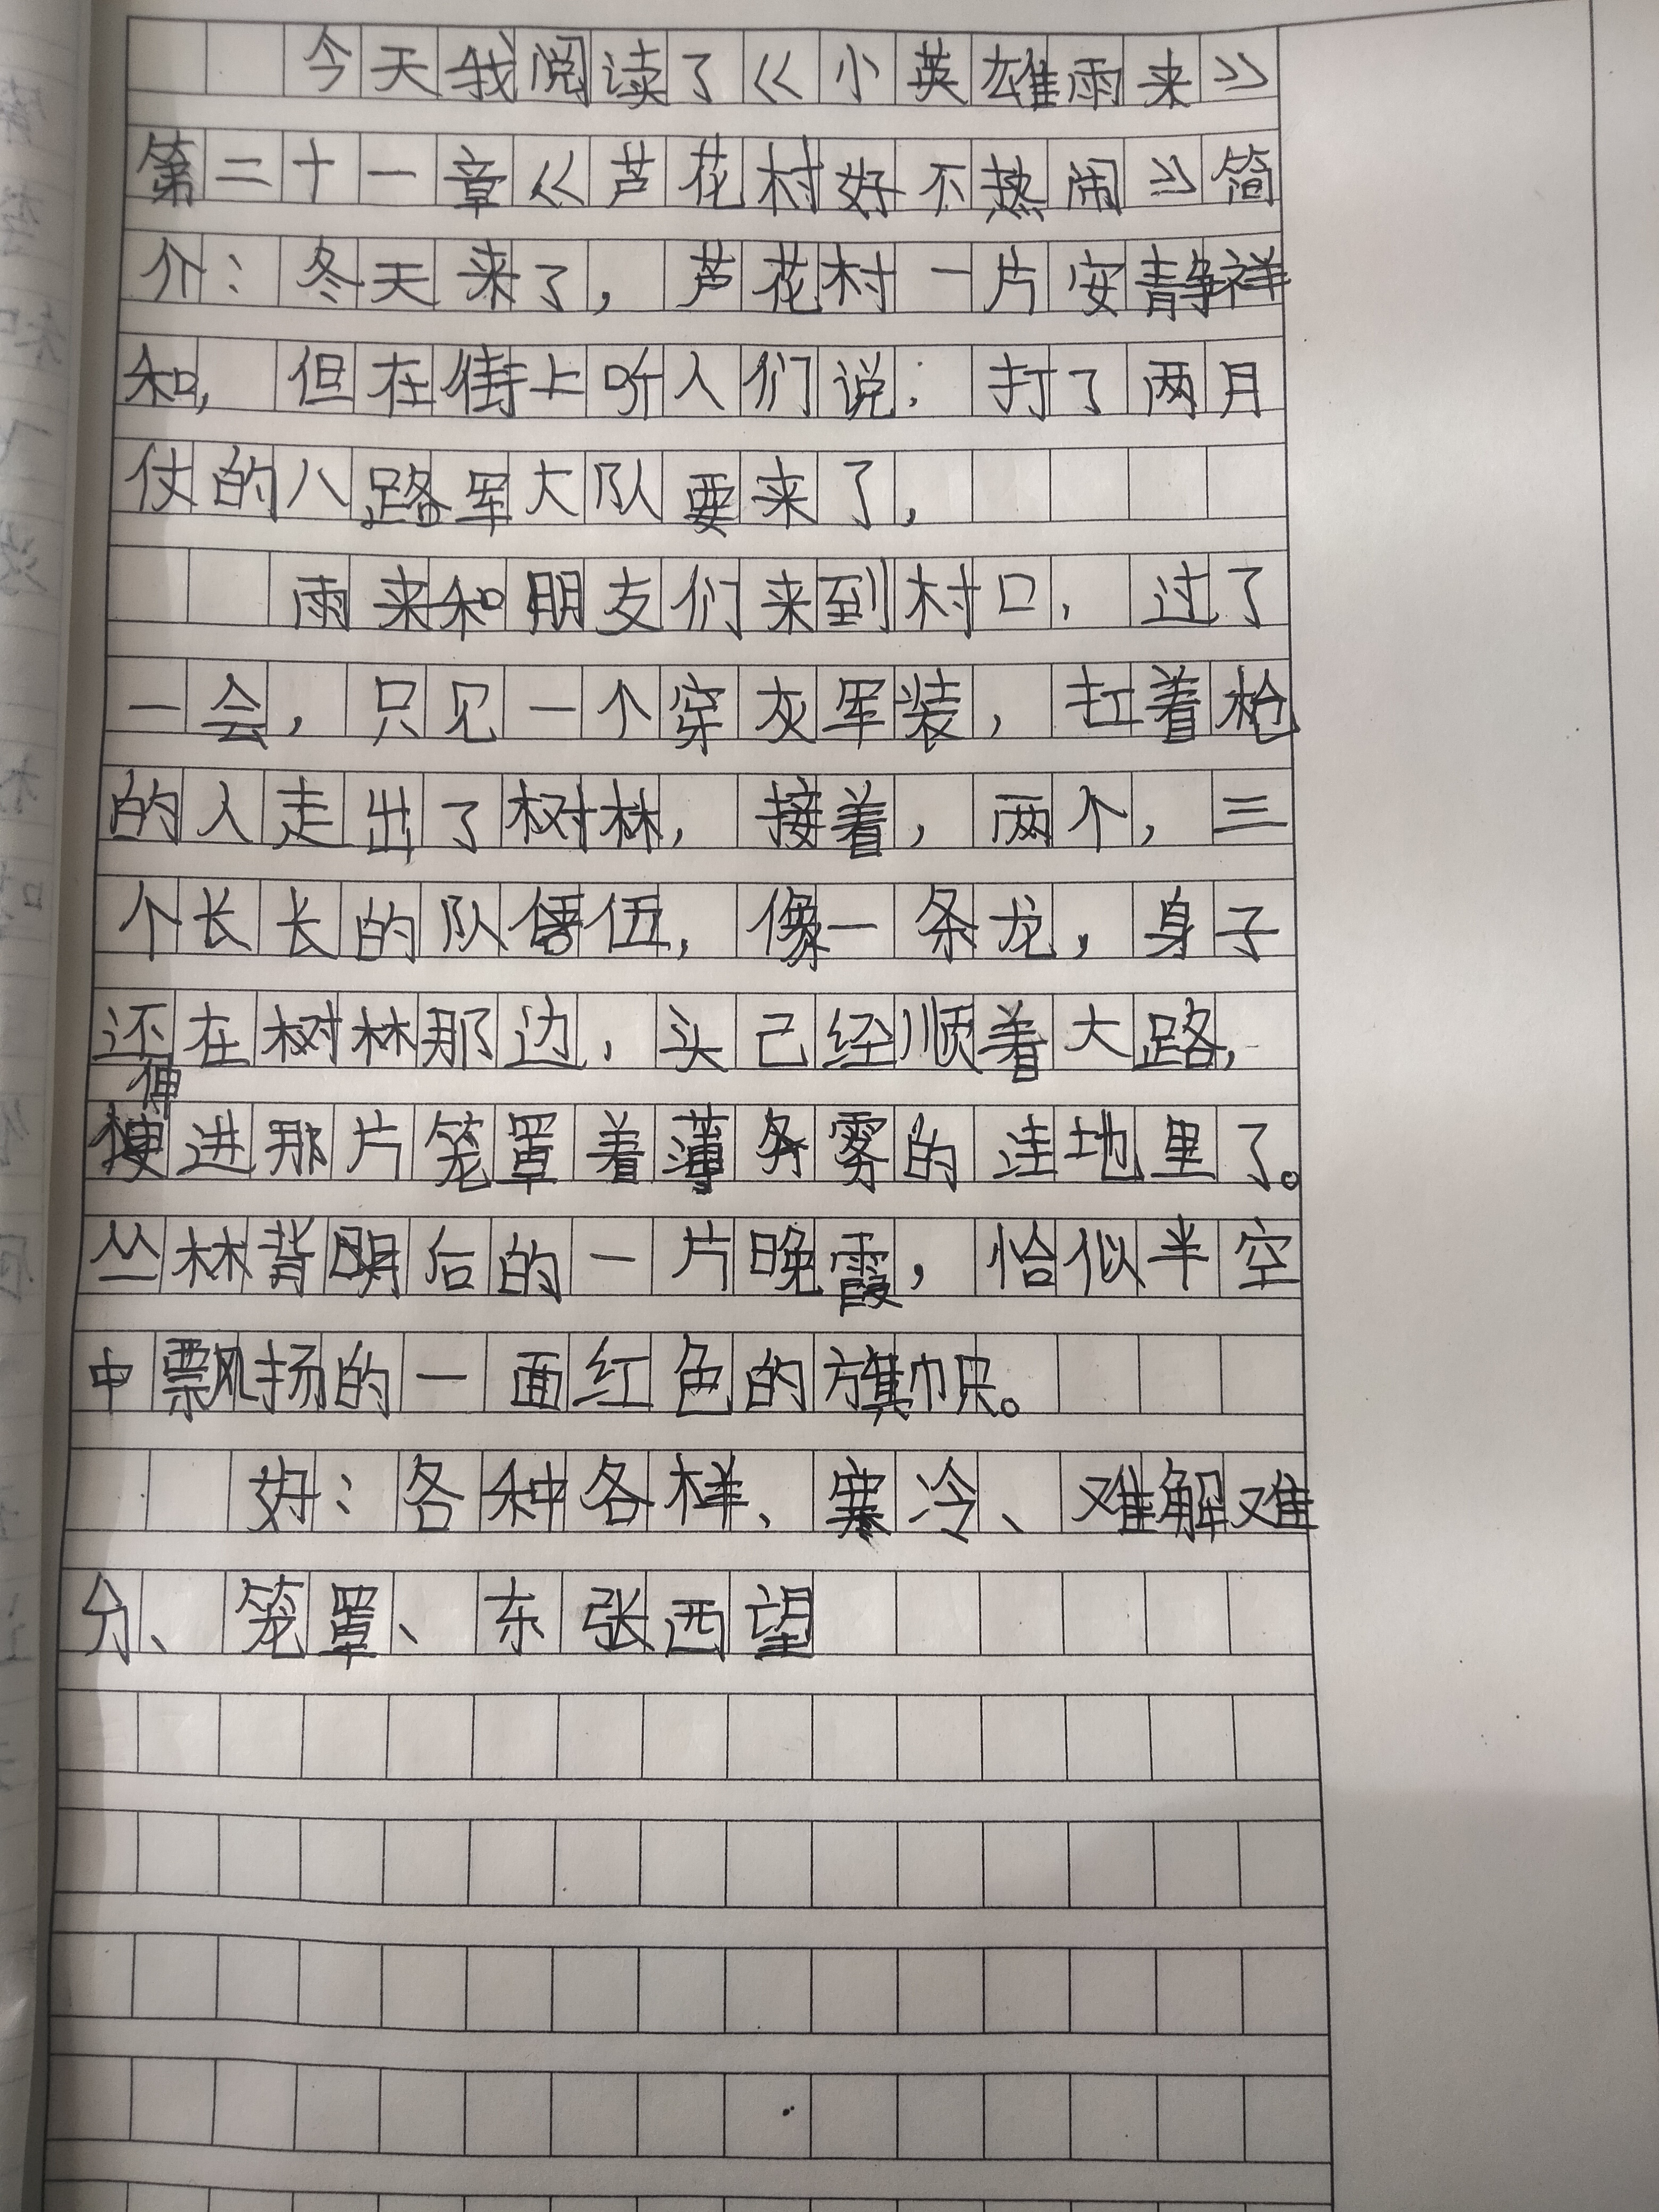 今天我阅读了《小英雄雨来》
第二十一章《芦花村好不热闹》简
介：冬天来了，芦花村一片安静祥
和，但在街上听人们说：打了两月
仗的八路军大队要来了，
雨来和朋友们来到村口，过了
一会，只见一个穿灰军装，扛着枪
的人走出了树林，接着，两个，三
个长长的队伍，像一条龙，身子
还在树林那边，头己经顺着大路，
伸
进那片笼罩着薄雾的洼地里了。
丛林背后的一片晚霞，恰似半空
中飘扬的一面红色的旗帜。
好：各种各样、寒冷、难解难
分、笼罩、东张西望